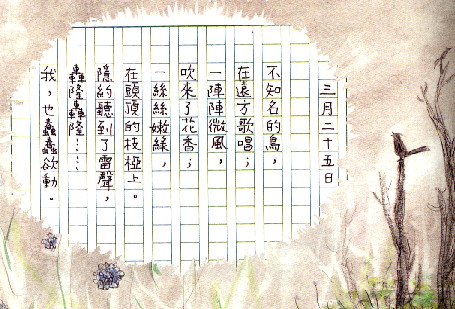 三月二十五日
不知名的鳥，
在遠方歌唱；
一陣陣微風，
吹來了花香；
一絲絲嫩綠，
在頭頂的枝椏上。
隱約聽到了雷聲，
轟隆轟隆……
我，也蠢蠢欲動。